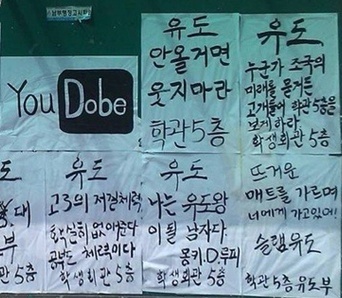 You Dobe
유도
안올거면
웃지마라
학관 5층
유도
누군가 조국의
미래를 묻거든
고개들어 학관 5층을
보게하라
학생회관 5층
도
대
부
관 5층
유도
고3의 저질체력
없애준다
공부도 체력이다
학생회관 5층
유도
나는 유도왕
이 될 남자다
몽키.D.루피
학생회관 5층
뜨거운
매트를 가르며
너에게 가고있어!
슬램유도
학관 5층 유도부